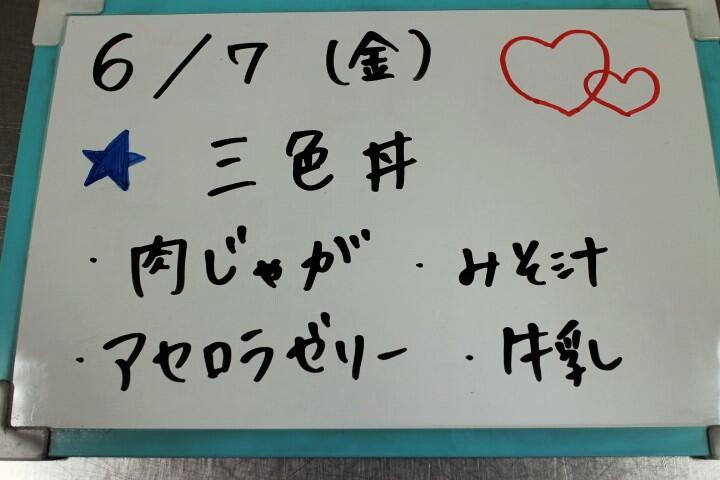 6/7 (金)
★ 三色丼
・肉じゃが ・みそ汁
・アセロラゼリー ・牛乳